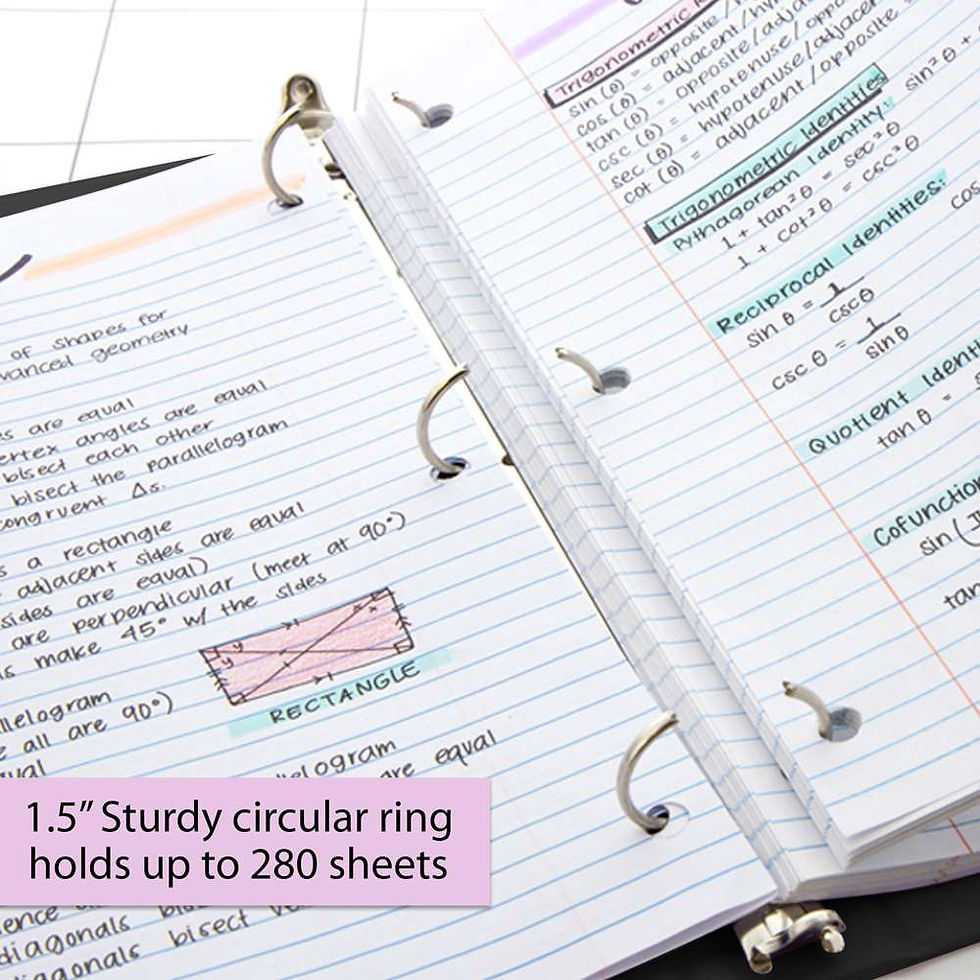 of shapes for
vanced geometry
es are equal
vertex angles are equal
bisect each other
bisect the parallelogram
congruent Δs.
s a rectangle
adjacent sides are equal
sides are equal)
are perpendicular (meet at 90°)
ls make 45° w/ the sides
RECTANGLE
llelogram
e all are 90°)
ual
llelogram
are equal
ence
diagonals
diagonals bisect
1.5” Sturdy circular ring
holds up to 280 sheets
Trigonometric
sin (θ) = opposite /
cos (θ) = adjacent/hyp
tan (θ) = opposite/adja
csc (θ) = hypotenuse/oppo
sec (θ) = hypotenuse/adjacen
cot (θ) = adjacent/opposite
Trigonometric Identities
Pythagorean Identity: sin²θ +
1 + tan²θ = sec²θ
1 + cot²θ = csc²θ
Reciprocal Identities:
sin θ = 1/cscθ
cos
csc θ = 1/sinθ
Quotient Identi
tan θ =
Cofunction
sin(
tan